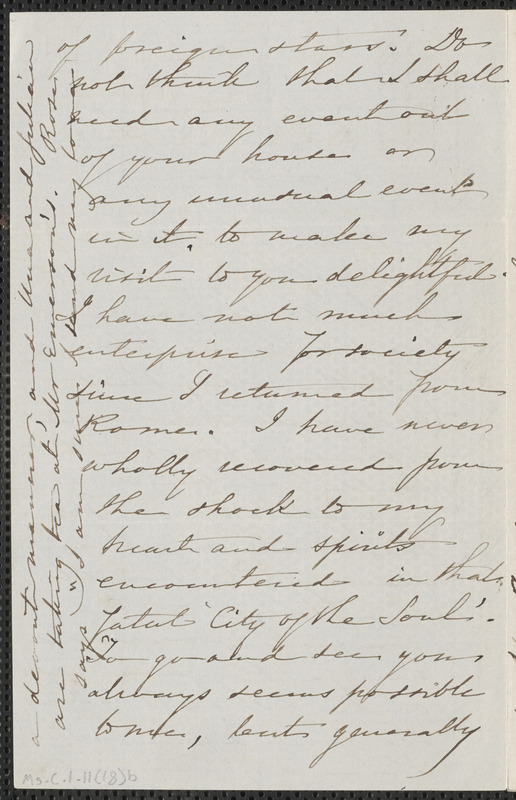 of foreign stars. Do
not think that I shall
need any event out
of your house or
any unusual event
in it, to make my
visit to you delightful.
I have not much
enterprise for society
since I returned from
Rome. I have never
wholly recovered from
the shock to my
heart and spirits
encountered in that
fatal "City of the Soul".
To go and see you
always seems possible
to me, but generally
a devout manner, and Una and Julian
are taking tea at Mr Emerson's. Rose
says "I am sure I send my love
Ms. C.1.11(18)b